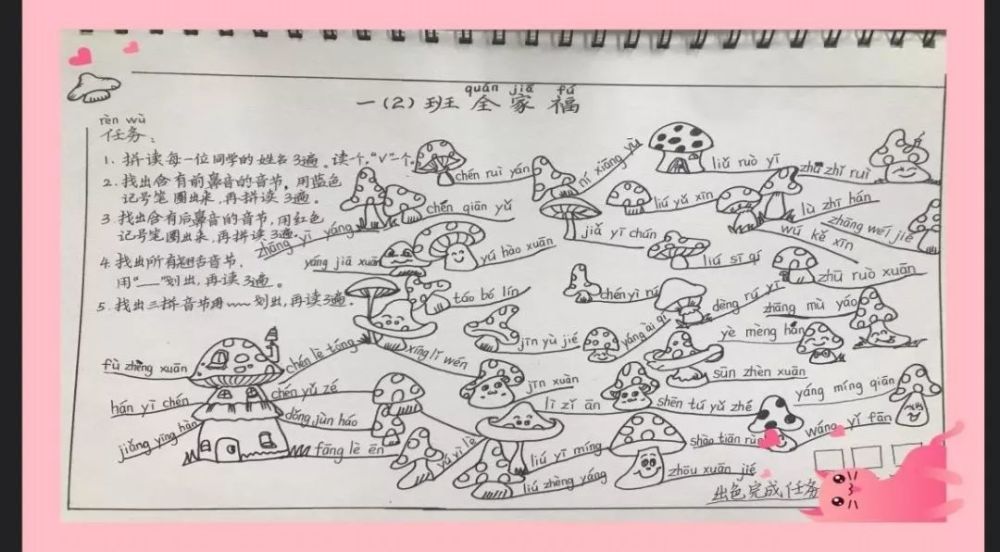 quán jiā fú
一(2)班全家福
rèn wù
任务:
1. 拼读每一位同学的姓名3遍。读一个,"√"一个。
2. 找出含有前鼻音的音节,用蓝色
记号笔圈出来,再拼读3遍。
3. 找出含有后鼻音的音节,用红色
记号笔圈出来,再拼读3遍。
4. 找出所有翘舌音节,
用"__"划出,再读3遍。
5. 找出三拼音节用﹏划出,再读3遍。
chén ruì yán
chén qiān yǔ
zhāng yī yáng
yáng jiā xuān
yú hào xuān
táo bó lín
ní xiāng yù
liǔ ruò yī
zhū zhǐ ruì
liú yǔ xīn
lù zhī hán
zhāng wéi jié
wú kě xīn
jiǎ yī chún
liú sī qí
zhū ruò xuān
chén yì rú
dèng rú yī
zhāng mù yáo
yè mèng hán
yáng ài qí
jīn yù jié
xíng lǐ wén
chén lè tóng
fù zhèng xuān
hán yī chén
jiǎng yíng hàn
chén yǔ zé
dǒng jùn háo
fāng lè ēn
yú yì lè
jīn xuàn
lǐ zǐ ān
shēn tú yǔ zhé
sūn zhèn xuān
yáng míng qiān
wáng yǐ fān
shào tiān rùn
liú yī míng
liú zhèng yáng
zhōu xuān jié
出色完成任务